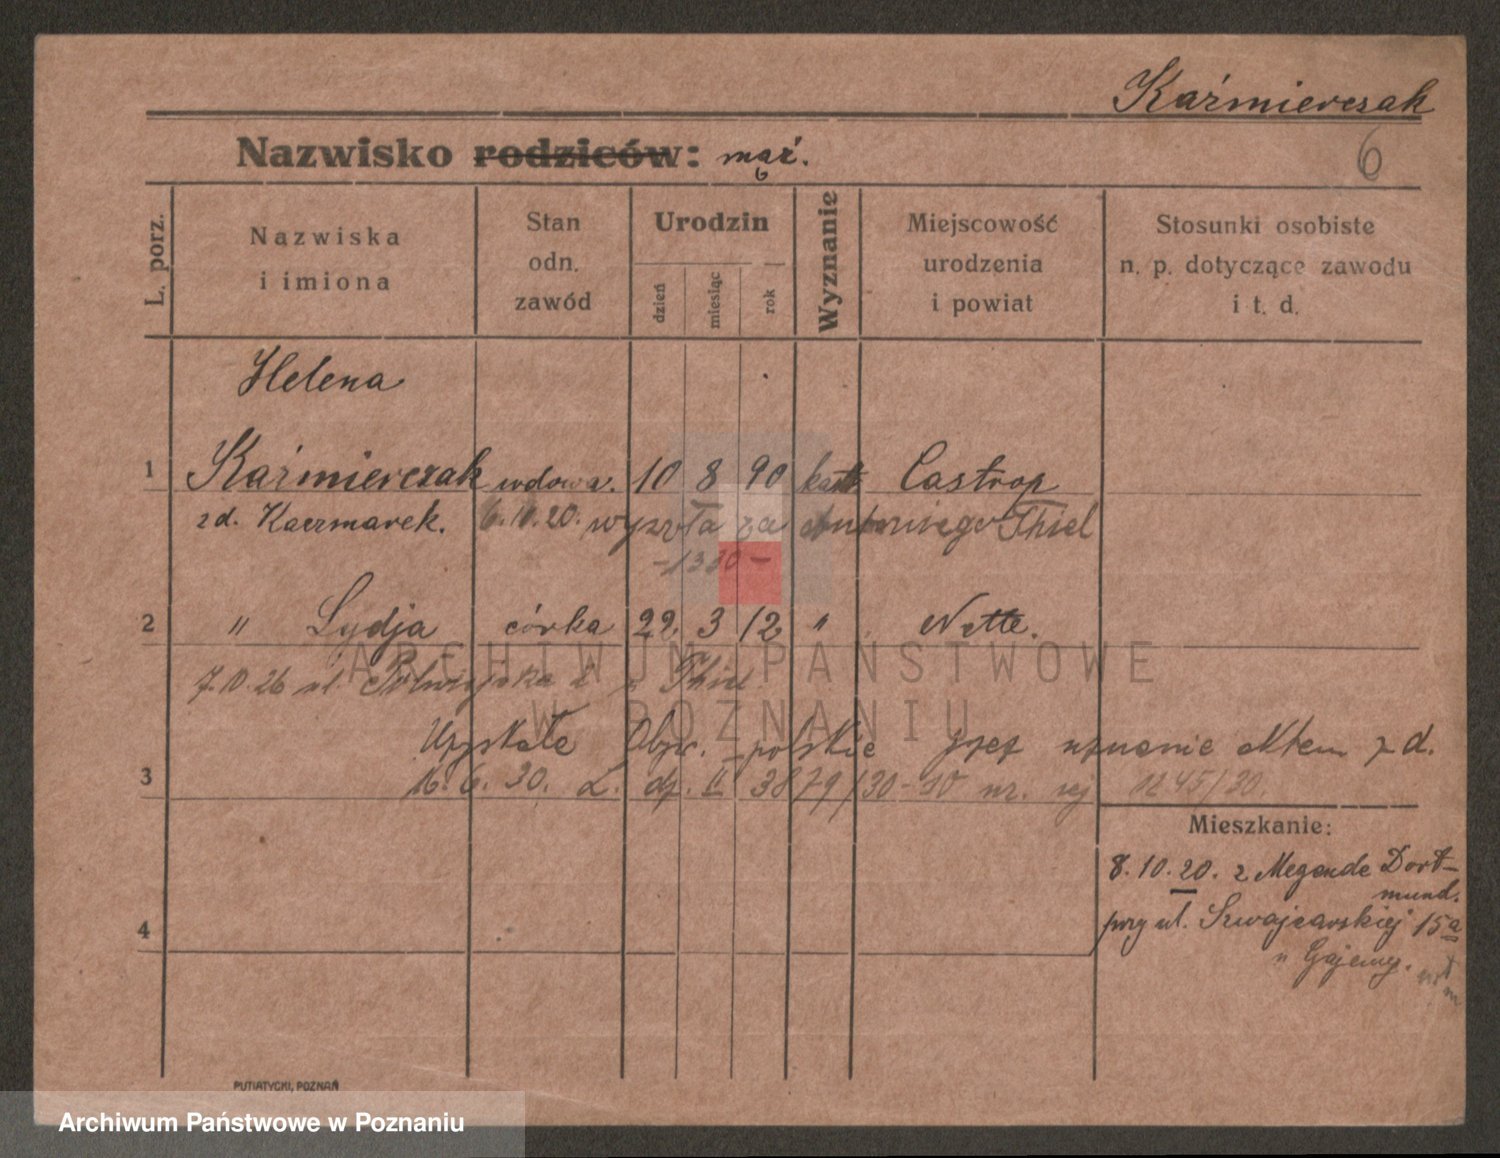 Kaźmierczak
Nazwisko rodziców: mąż.
6
L. porz.
Nazwiska
i imiona
Stan
odn.
zawód
Urodzin
dzień
miesiąc
rok
Wyznanie
Miejscowość
urodzenia
i powiat
Stosunki osobiste
n. p. dotyczące zawodu
i t. d.
Helena
1 Kaźmierczak wdowa. 10 8 90 kat Castrop
zd. Kaczmarek. 6.11.20. wyszła za Thiel
2 " Lydja córka 22. 3 12 " Nette.
7.10.26 ul. Thiel
Uzyskała Obyw. polskie przez uznanie Aktem z d.
3 16. 6. 30. L. dz. II 3879/30 nr. rej 1245/30.
Mieszkanie:
8.10.20. z Megende Dort-
mund.
4
przy ul. Szwajcarskiej 15a
u Gajewy.
PUTIATYCKI, POZNAŃ
ARCHIWUM PAŃSTWOWE
W POZNANIU
Archiwum Państwowe w Poznaniu